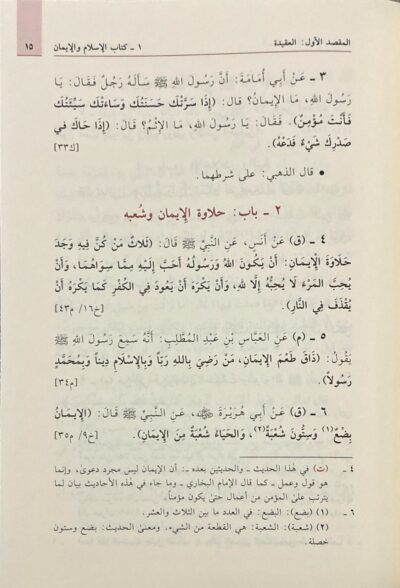 المقصد الأول: العقيدة
١ ـ كتاب الإسلام والإيمان
١٥
٣ ـ عَنْ أَبِي أُمَامَةَ: أَنَّ رَسُولَ اللهِ ﷺ سَأَلَهُ رَجُلٌ فَقَالَ: يَا
رَسُولَ اللهِ، مَا الإِيمَانُ؟ قال: (إِذَا سَرَّتْكَ حَسَنَتُكَ وَسَاءَتْكَ سَيِّئَتُكَ
فَأَنْتَ مُؤْمِنٌ). فَقَالَ: يَا رَسُولَ اللهِ، مَا الإِثْمُ؟ قَالَ: (إِذَا حَاكَ في
صَدْرِكَ شَيْءٌ فَدَعْهُ). [ك٣٣]
• قال الذهبي: على شرطهما.
٢ ـ باب: حلاوة الإيمان وشُعبه
٤ ـ (ق) عَنْ أَنَسٍ، عَنِ النَّبِيِّ ﷺ قَالَ: (ثَلاثٌ مَنْ كُنَّ فِيهِ وَجَدَ
حَلَاوَةَ الْإِيمَانِ: أَنْ يَكُونَ اللهُ وَرَسُولُهُ أَحَبَّ إِلَيْهِ مِمَّا سِوَاهُمَا، وَأَنْ
يُحِبَّ المَرْءَ لَا يُحِبُّهُ إِلَّا لِلهِ، وَأَنْ يَكْرَهَ أَنْ يَعُودَ فِي الْكُفْرِ كَمَا يَكْرَهُ أَنْ
يُقْذَفَ فِي النَّارِ). [خ١٦/ م٤٣]
٥ ـ (م) عَنِ العَبَّاسِ بْنِ عَبْدِ المُطَّلِبِ: أَنَّهُ سَمِعَ رَسُولَ اللهِ ﷺ
يَقُولُ: (ذَاقَ طَعْمَ الإِيمَانِ، مَنْ رَضِيَ بِاللهِ رَبّاً وَبِالإِسْلَامِ دِيناً وَبِمُحَمَّدٍ
رَسُولاً). [م٣٤]
٦ ـ (ق) عَنْ أَبِي هُرَيْرَةَ ﵁، عَنِ النَّبِيِّ ﷺ قَالَ: (الإِيمَانُ
بِضْعٌ(١) وَسِتُّونَ شُعْبَةً(٢)، وَالحَيَاءُ شُعْبَةٌ مِنَ الإِيمَانِ). [خ٩/ م٣٥]
٤ ـ (ت) في هٰذا الحديث ـ والحديثين بعده ـ: أن الإيمان ليس مجرد دعوى، وإنما
هو قول وعمل ـ كما قال الإمام البخاري ـ وما جاء في هٰذه الأحاديث بيان لما
يترتب علىٰ المؤمن من أعمال حتىٰ يكون مؤمناً.
٦ ـ (١) (بضع): البضع: في العدد ما بين الثلاث والعشر.
(٢) (شعبة): الشعبة: هي القطعة من الشيء، ومعنىٰ الحديث: بضع وستون
خصلة.